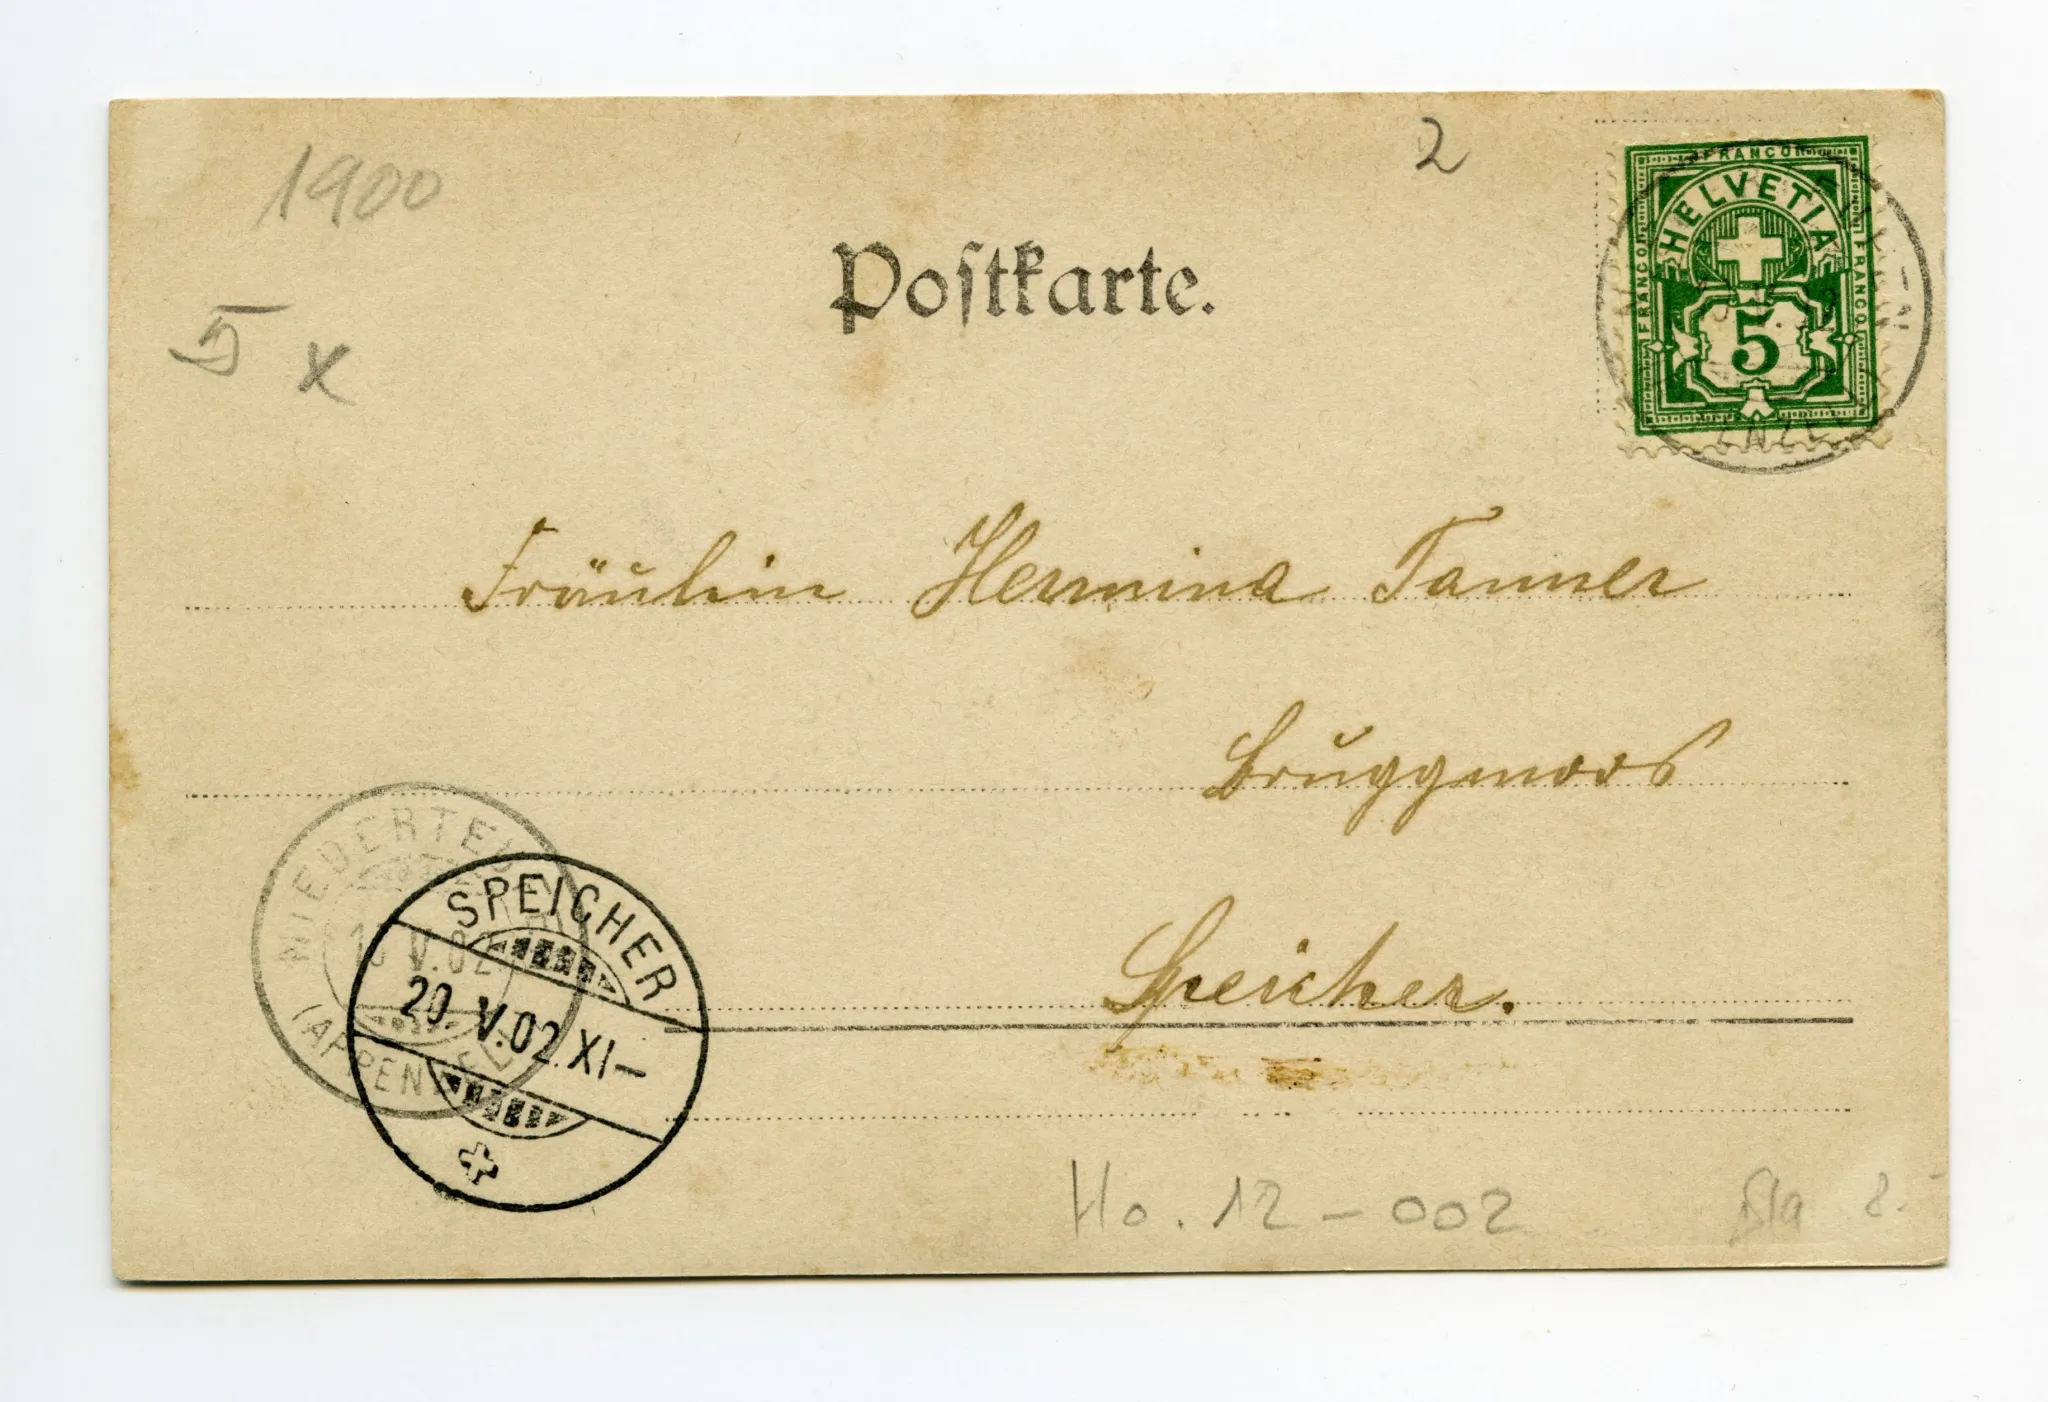 1900
2
Postkarte.
FRANCO
HELVETIA
FRANCO
FRANCO
5
5 x
Fräulein Hermina Tanner
Bruggmoos
Speicher.
NIEDERTEU
V.02
(APPENZELL
SPEICHER
20.V.02.XI–
Ho. 12-002
8.-